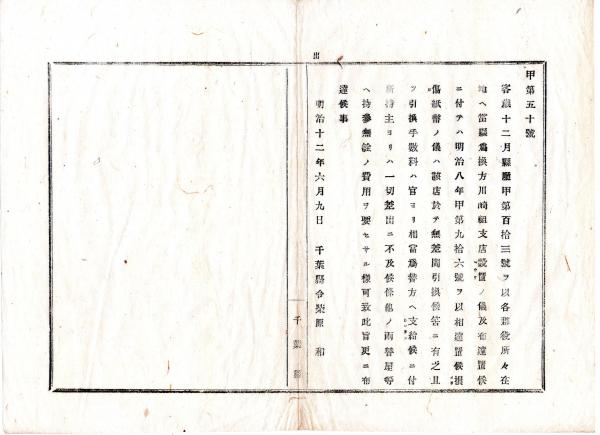 甲第五十號
客歳十二月縣廳甲第百拾三號ヲ以各郡役所々在
地ヘ當縣爲換方川崎組支店設置ノ儀及布達置候
ニ付テハ明治八年甲第九拾六號ヲ以相達置候損
傷紙幣ノ儀ハ該店於テ無差閊引換候筈ニ有之且
ツ引換手數料ハ官ヨリ相當爲替方ヘ支給候ニ付
所持主ヨリハ一切差出ニ不及候條他ノ兩替屋等
ヘ持參無詮ノ費用ヲ要セサル樣可致此旨更ニ布
達候事
明治十二年六月九日 千葉縣令柴原 和
出
千葉縣